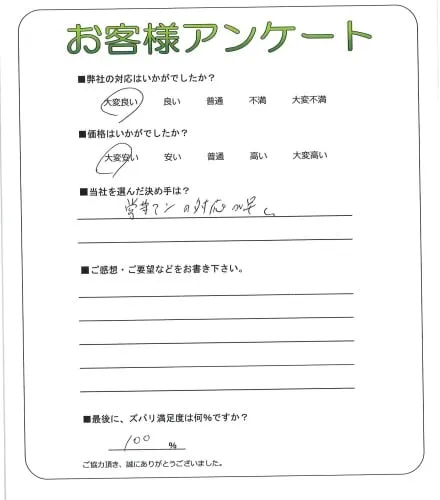 お客様アンケート
■弊社の対応はいかがでしたか？
大変良い 良い 普通 不満 大変不満
■価格はいかがでしたか？
大変安い 安い 普通 高い 大変高い
■当社を選んだ決め手は？
営業マンの対応が早く
■ご感想・ご要望などをお書き下さい。
■最後に、ズバリ満足度は何%ですか？
100 %
ご協力頂き、誠にありがとうございました。